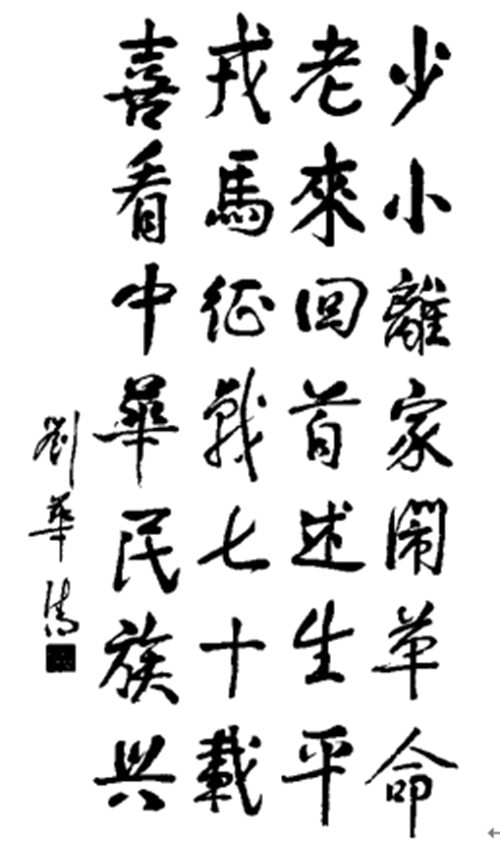 少小離家鬧革命
老來回首述生平
戎馬征戰七十載
喜看中華民族興
劉華清